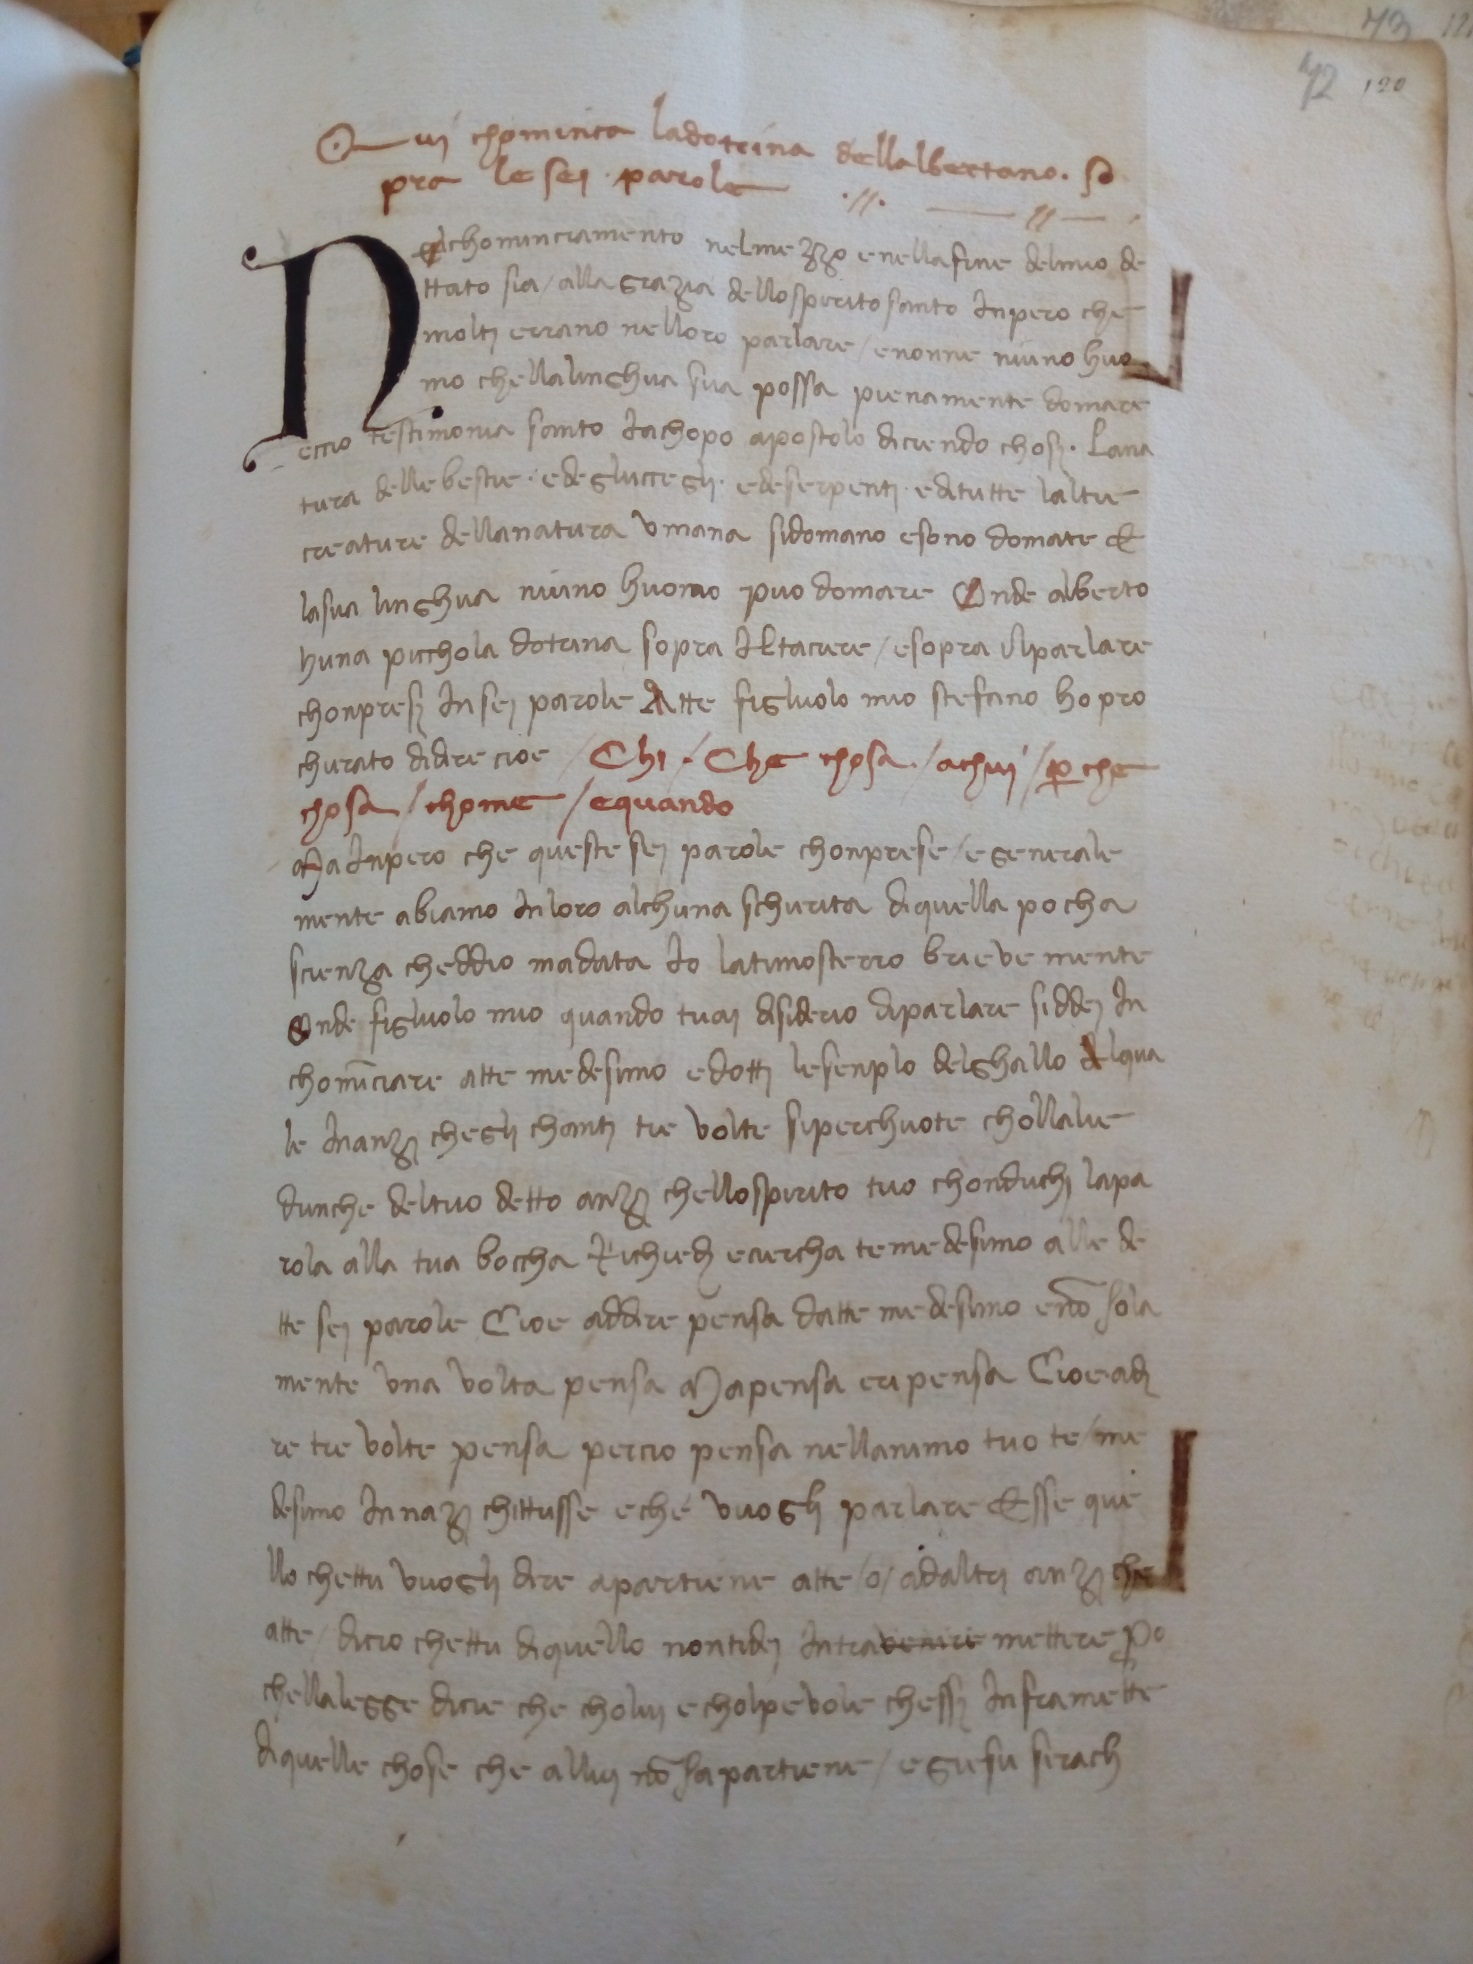 72 120
Qui chomincia ladotrina dellalbertano. so
pra lesei parole .//.
Nelchominciamento nelmezzo enellafine delmio de
ttato sia / alla grazia dellosperitosanto Inpero che
molti errano nelloro parlare / enonne niuno huo
mo chellalinghua sua possa pienamente domare
eccio testimonia santo Iachopo apostolo diciendo chosj. Lana
tura dellebestie. edegluccegli. edeserpenti. editutte laltre
creature dellanatura vmana sidomano esono domate E
lasua linghua niuno huomo puo domare Onde alberto
huna picchola dotrina sopra Iltacere / esopra Ilparlare
chonpresj Insej parole Atte figluolo mio stefano ho pro
churato didire cioe / Chi. Che chosa. / achuj / perche
chosa / chome / equando
MaInpero che queste sej parole chonprese / egenerale
mente abiamo Inloro alchuna schurita diquella pocha
scienza cheddio madata Io latimosterro brievemente
Onde figluolo mio quando tuaj disiderio diparlare siddej In
chomīciare atte medesimo edotti lesenplo delghallo Alqua
le Inanzj chegli chantj tre volte siperchuote chollalie
dunche deltuo detto anzj chellospirito tuo chonduchj lapa
rola alla tua boccha Richiedj eciercha temedesimo alle de
tte sej parole Cioe addire pensa datte medesimo enō sola
mente vna volta pensa Mapensa eripensa Cioe adj
re tre volte pensa percio pensa nellanimo tuo te / me
desimo Innazj chittusse eche vuoglj parlare Esse que
llo chettu vuoglj dire apartiene atte / o / adaltrj anzj che
atte / dicio chettu diquello nontidej Intravenire mettere po
chellalegge dicie che choluj echolpevole chessj Inframette
diquelle chose che alluj nō sapartiene / egiesu sirach